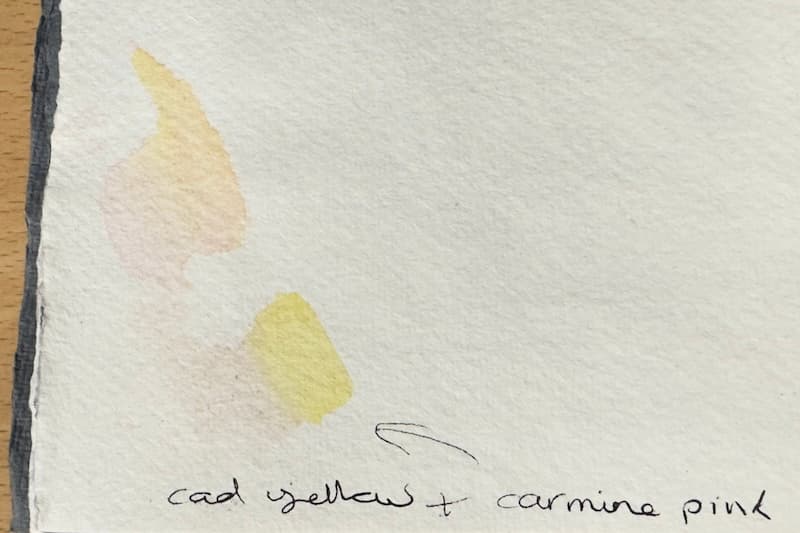 cad yellow + carmine pink